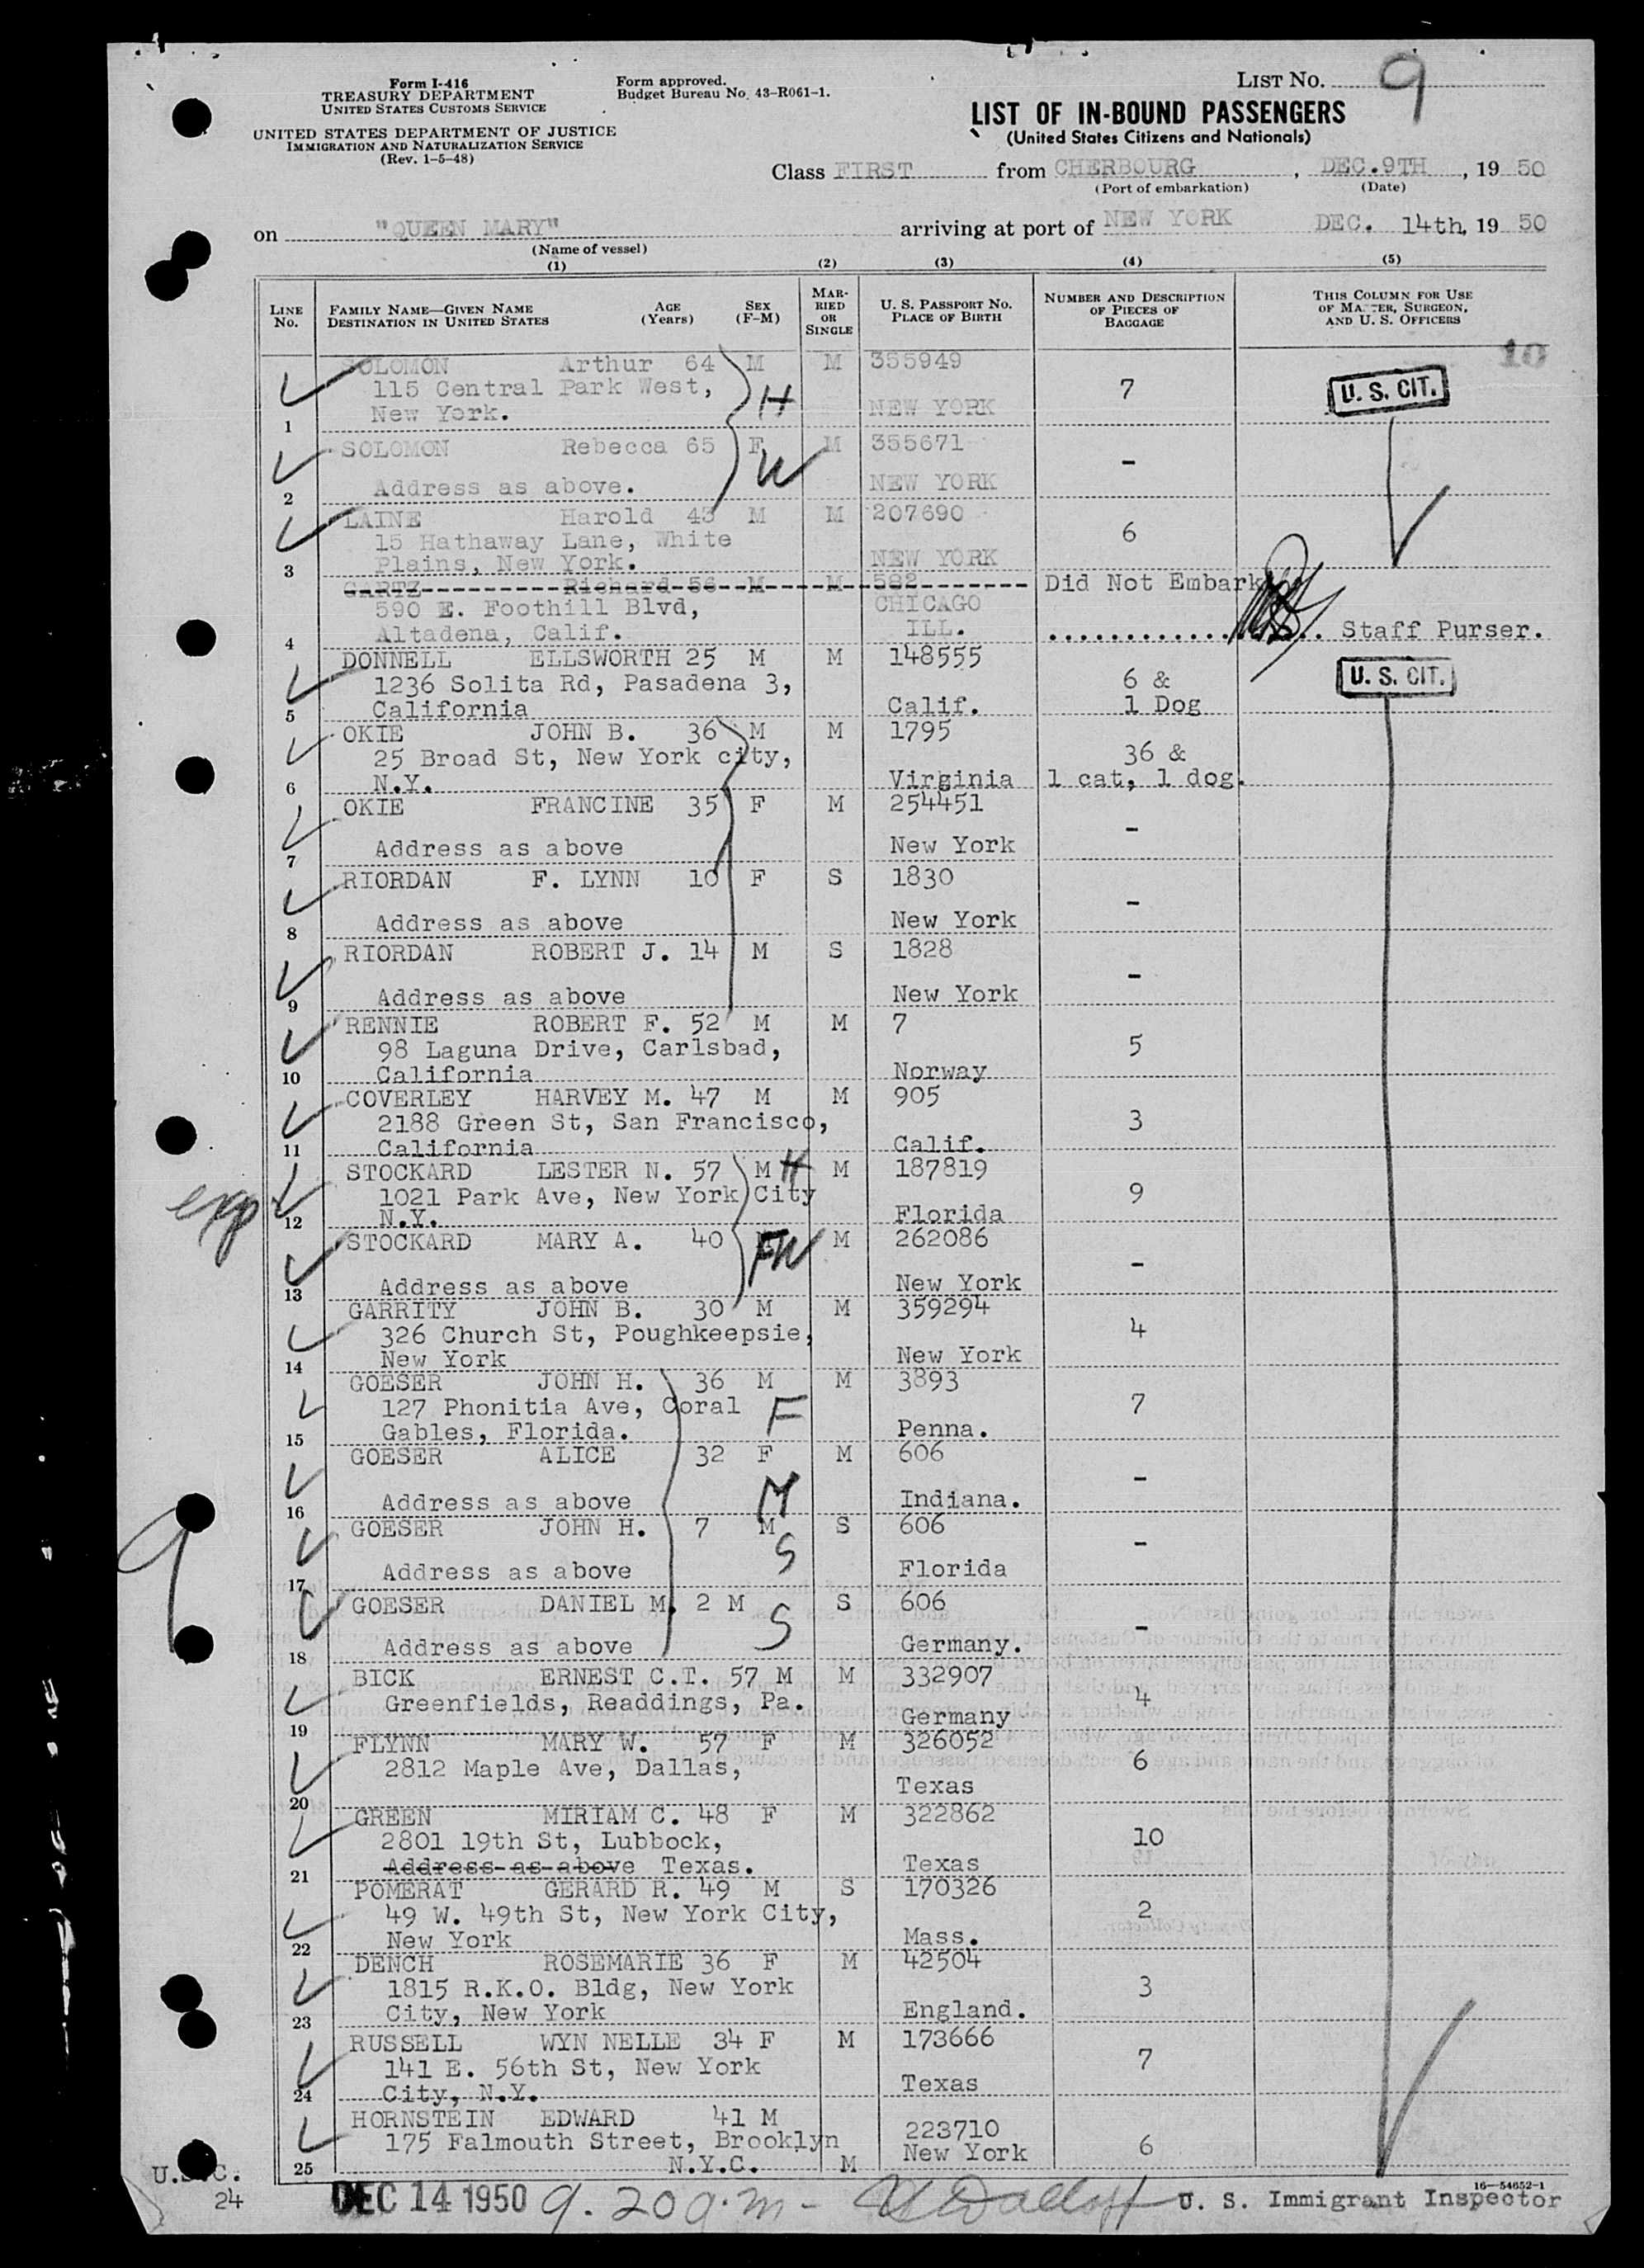 Form I-416
TREASURY DEPARTMENT
UNITED STATES CUSTOMS SERVICE
UNITED STATES DEPARTMENT OF JUSTICE
IMMIGRATION AND NATURALIZATION SERVICE
(Rev. 1-5-48)
Form approved.
Budget Bureau No. 43-R061-1.
LIST NO. 9
LIST OF IN-BOUND PASSENGERS
(United States Citizens and Nationals)
Class FIRST from CHERBOURG, DEC.9TH, 19 50
(Port of embarkation) (Date)
on "QUEEN MARY" arriving at port of NEW YORK DEC. 14th, 19 50
(Name of vessel)
(1) (2) (3) (4) (5)
LINE No. FAMILY NAME—GIVEN NAME DESTINATION IN UNITED STATES AGE (Years) SEX (F-M) MARRIED OR SINGLE U. S. PASSPORT NO. PLACE OF BIRTH NUMBER AND DESCRIPTION OF PIECES OF BAGGAGE THIS COLUMN FOR USE OF MASTER, SURGEON, AND U. S. OFFICERS
10
SOLOMON Arthur 64 M M 355949
115 Central Park West, H 7 U. S. CIT.
1 New York. NEW YORK
SOLOMON Rebecca 65 F M 355671
W -
2 Address as above. NEW YORK
LAINE Harold 43 M M 207690
15 Hathaway Lane, White 6
3 Plains, New York. NEW YORK
GARTZ Richard 56 M M 582 Did Not Embark
590 E. Foothill Blvd, CHICAGO
4 Altadena, Calif. ILL. Staff Purser.
DONNELL ELLSWORTH 25 M M 148555 U. S. CIT.
1236 Solita Rd, Pasadena 3, 6 &
5 California Calif. 1 Dog
OKIE JOHN B. 36 M M 1795
25 Broad St, New York city, 36 &
6 N.Y. Virginia 1 cat, 1 dog.
OKIE FRANCINE 35 F M 254451
-
7 Address as above New York
RIORDAN F. LYNN 10 F S 1830
-
8 Address as above New York
RIORDAN ROBERT J. 14 M S 1828
-
9 Address as above New York
RENNIE ROBERT F. 52 M M 7
98 Laguna Drive, Carlsbad, 5
10 California Norway
COVERLEY HARVEY M. 47 M M 905
2188 Green St, San Francisco, 3
11 California Calif.
STOCKARD LESTER N. 57 M H M 187819
1021 Park Ave, New York City 9
12 N.Y. Florida
STOCKARD MARY A. 40 F W M 262086
-
13 Address as above New York
GARRITY JOHN B. 30 M M 359294
326 Church St, Poughkeepsie, 4
14 New York New York
GOESER JOHN H. 36 M M 3893
127 Phonitia Ave, Coral F 7
15 Gables, Florida. Penna.
GOESER ALICE 32 F M 606
M -
16 Address as above Indiana.
GOESER JOHN H. 7 M S 606
S -
17 Address as above Florida
GOESER DANIEL M. 2 M S 606
S -
18 Address as above Germany.
BICK ERNEST C.T. 57 M M 332907
Greenfields, Readdings, Pa. 4
19 Germany
FLYNN MARY W. 57 F M 326052
2812 Maple Ave, Dallas, 6
20 Texas
GREEN MIRIAM C. 48 F M 322862
2801 19th St, Lubbock, 10
21 Address as above Texas. Texas
POMERAT GERARD R. 49 M S 170326
49 W. 49th St, New York City, 2
22 New York Mass.
DENCH ROSEMARIE 36 F M 42504
1815 R.K.O. Bldg, New York 3
23 City, New York England.
RUSSELL WYN NELLE 34 F M 173666
141 E. 56th St, New York 7
24 City, N.Y. Texas
HORNSTEIN EDWARD 41 M 223710
175 Falmouth Street, Brooklyn New York 6
25 N.Y.C. M
16-54652-1
24 DEC 14 1950 9.20 a.m - U. S. Immigrant Inspector